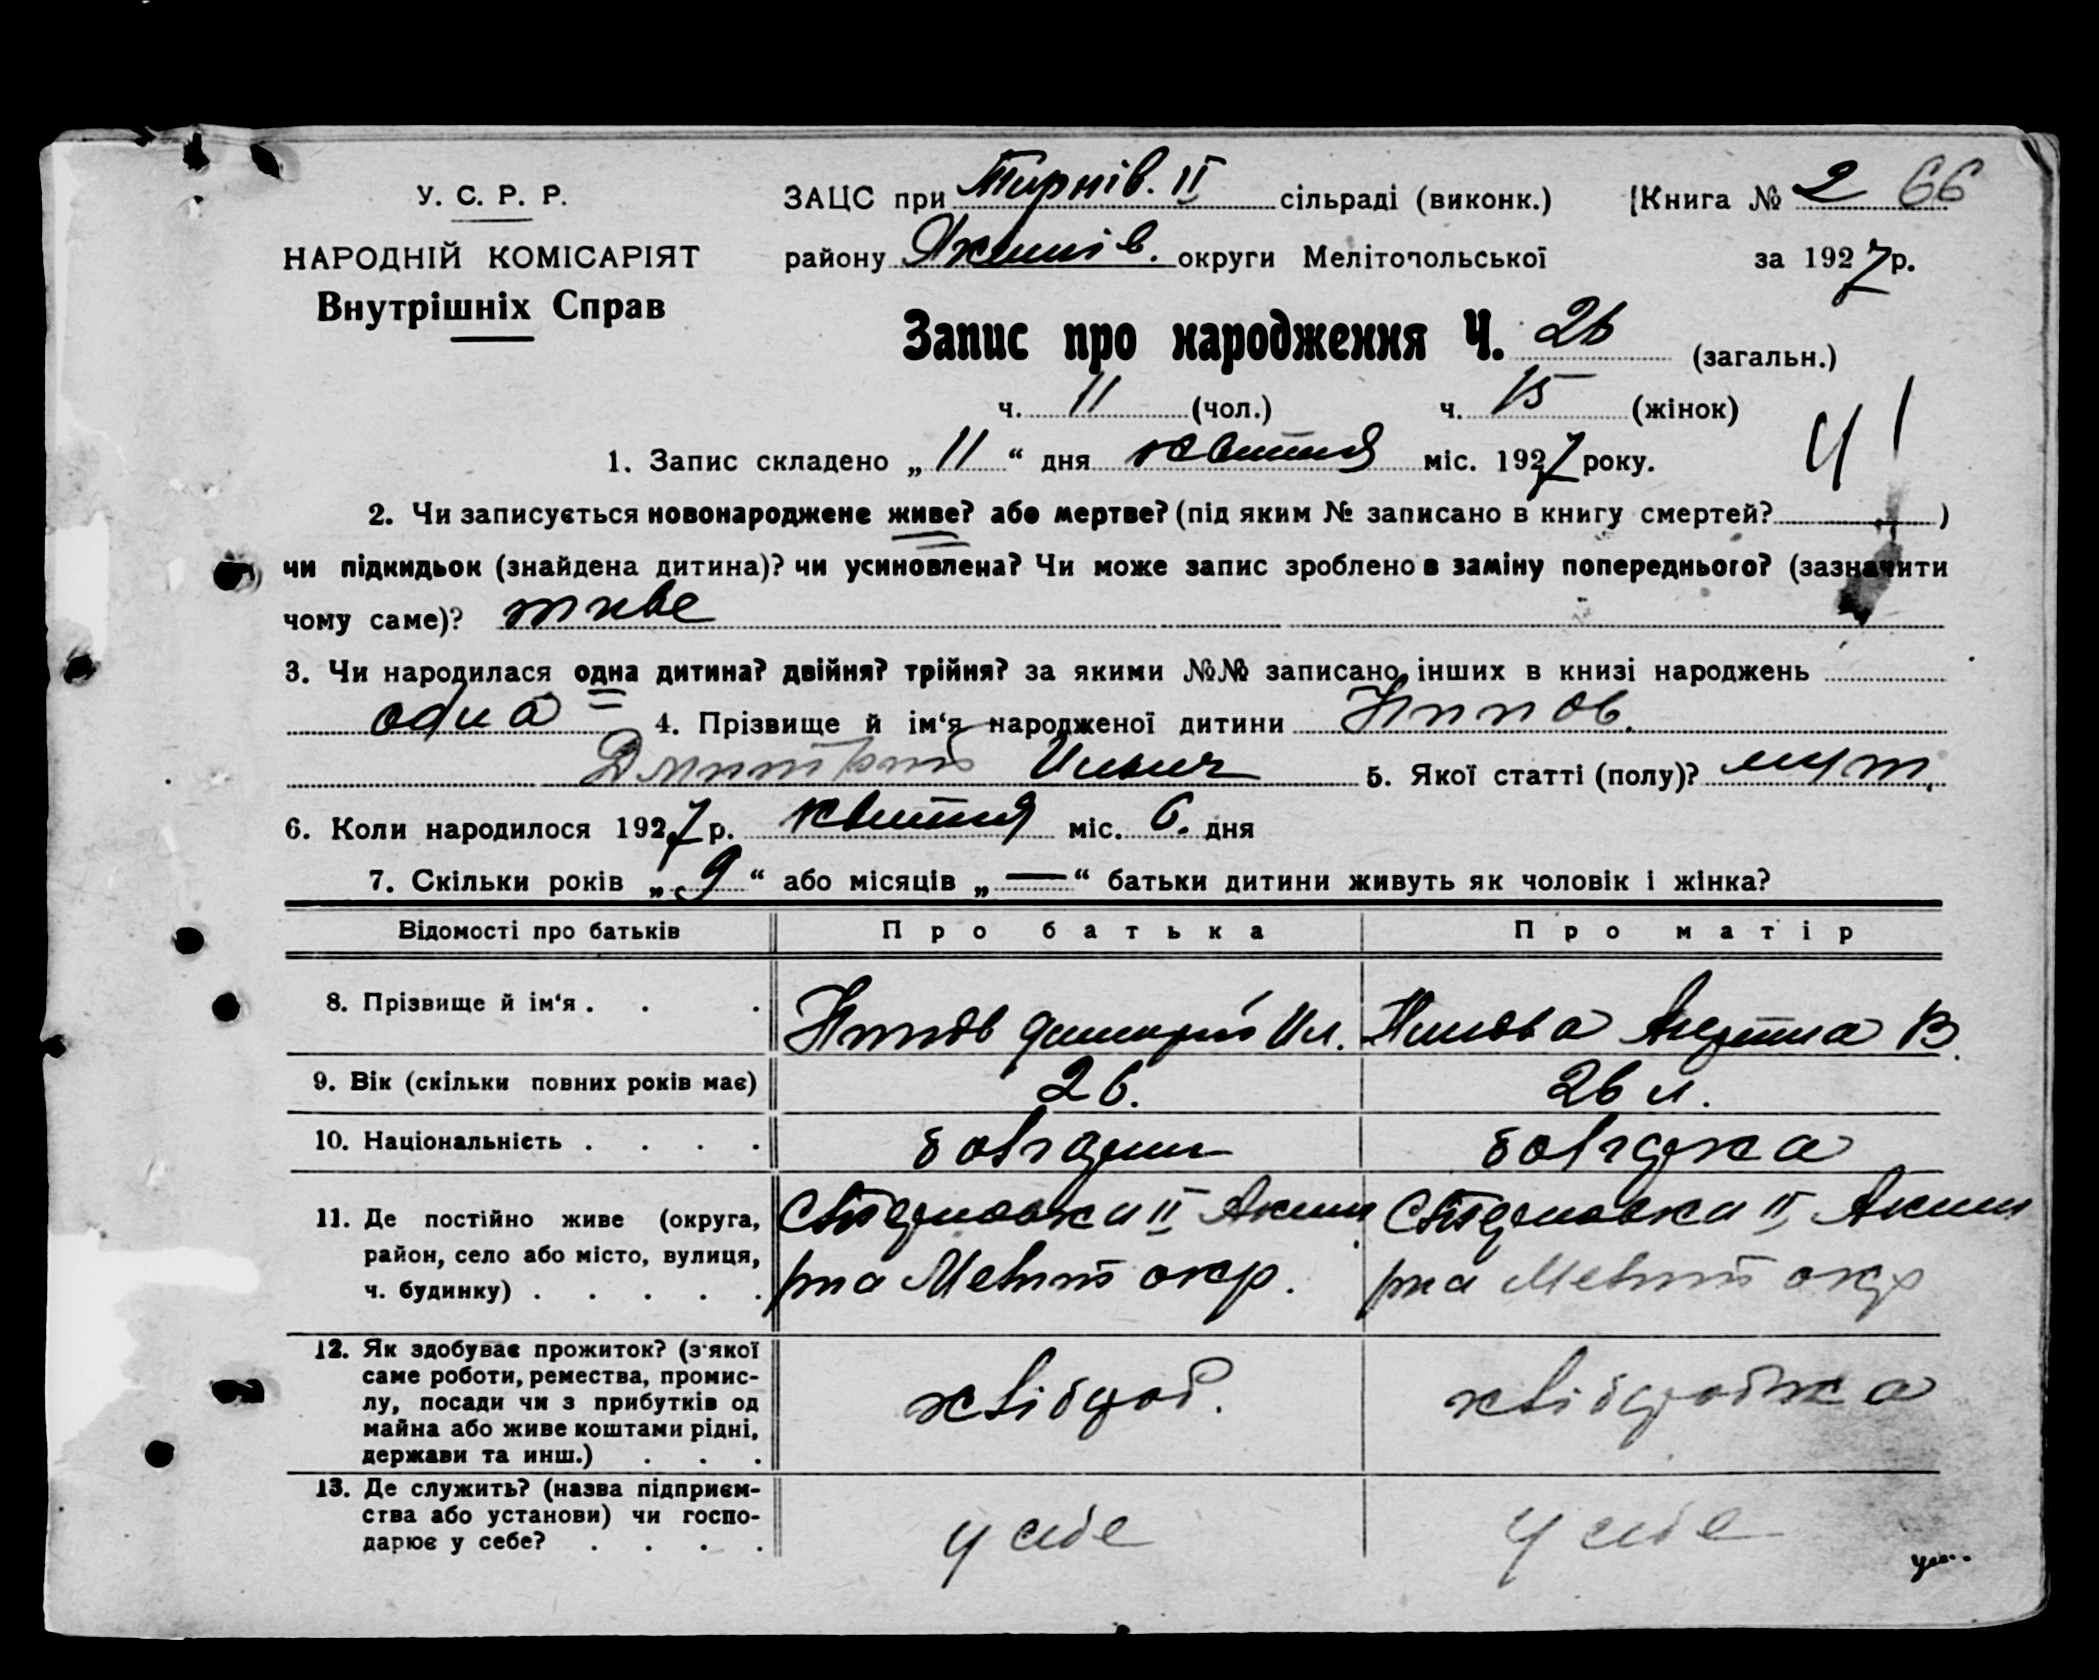 У. С. Р. Р.
НАРОДНІЙ КОМІСАРІЯТ
Внутрішніх Справ
ЗАЦС при Тирнів. II сільраді (виконк.)
Книга № 2 66
району Якимів. округи Мелітопольської
за 1927 р.
Запис про народження Ч. 26 (загальн.)
ч. 11 (чол.) ч. 15 (жінок)
1. Запис складено „11“ дня квітня міс. 1927 року.
2. Чи записується новонароджене живе? або мертве? (під яким № записано в книгу смертей? )
чи підкидьок (знайдена дитина)? чи усиновлена? Чи може запис зроблено в заміну попереднього? (зазначити
чому саме)? живе
3. Чи народилася одна дитина? двійня? трійня? за якими №№ записано інших в книзі народжень
одна 4. Прізвище й ім‘я народженої дитини
Дмитрит 5. Якої статті (полу)? муж.
6. Коли народилося 1927 р. квітня міс. 6. дня
7. Скільки років „9“ або місяців „—“ батьки дитини живуть як чоловік і жінка?
Відомості про батьків Про батька Про матір
8. Прізвище й ім‘я . . . Дмитрій Ил. В.
9. Вік (скільки повних років має) 26. 26 л.
10. Національність . . . . болгарин болгарка
11. Де постійно живе (округа, II Аким II Аким
район, село або місто, вулиця, р-на Меліт окр. р-на Меліт окр
ч. будинку) . . . . .
12. Як здобуває прожиток? (з якої
саме роботи, ремества, промис-
лу, посади чи з прибутків од хлібороб. хліборобка
майна або живе коштами рідні,
держави та инш.) . . .
13. Де служить? (назва підприєм-
ства або установи) чи госпо- у себе у себе
дарює у себе? . . . .